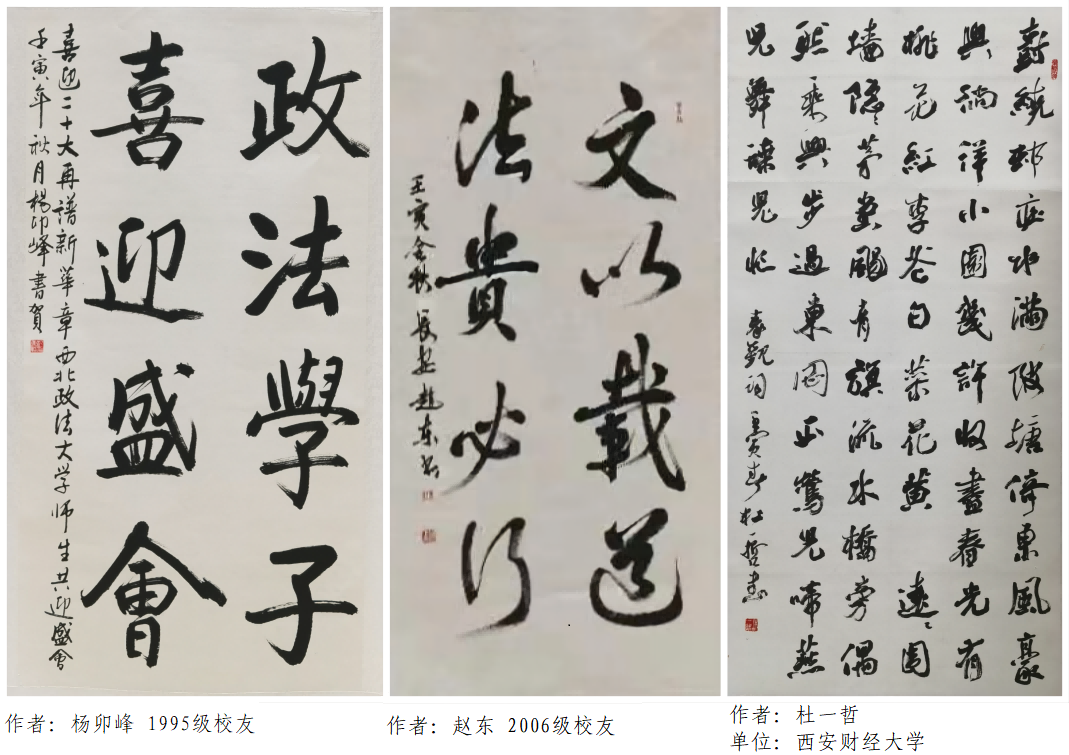 政法學子
喜迎盛會
喜迎二十大再譜新華章西北政法大学師生共迎盛會
壬寅年秋月楊卯峰書賀
文以載道
法貴必行
壬寅金秋長安趙東書
樹繞邨莊水滿陂塘倚東風豪
興徜徉小園幾許收盡春光有
桃花紅李花白菜花黃遠遠圍
墻隱隱茅堂颺青旗流水橋旁偶
然乘興步過東岡正鶯兒啼燕
兒舞蝶兒忙 秦觀詞 壬寅春杜一哲書
作者：杨卯峰 1995级校友
作者：赵东 2006级校友
作者：杜一哲
单位：西安财经大学